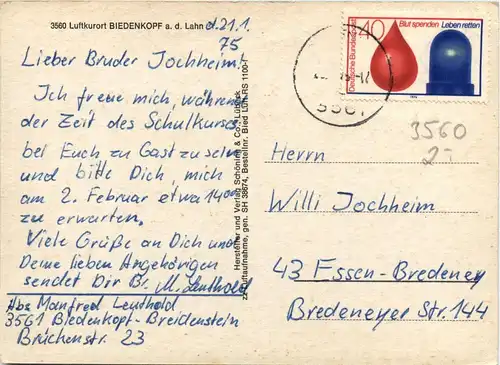 3560 Luftkurort BIEDENKOPF a. d. Lahn
d. 21.1.
75
Lieber Bruder Jochheim!
Ich freue mich, während
der Zeit des Schulkurses
bei Euch zu Gast zu sein
und bitte Dich, mich
am 2. Februar etwa 14⁰⁰
zu erwarten.
Viele Grüße an Dich und
Deine lieben Angehörigen
sendet Dir Br. M. Leuthold
Abs Manfred Leuthold
3561 Biedenkopf-Breidenstein
Brückenstr. 23
Hersteller und Verlag Schöning & Co., Lübeck
gen. SH 38674, Bestellnr. Bied Luft RS 1100
40
Blut spenden Leben retten
Deutsche Bundespost
3560
Herrn
Willi Jochheim
43 Essen-Bredeney
Bredeneyer Str. 144